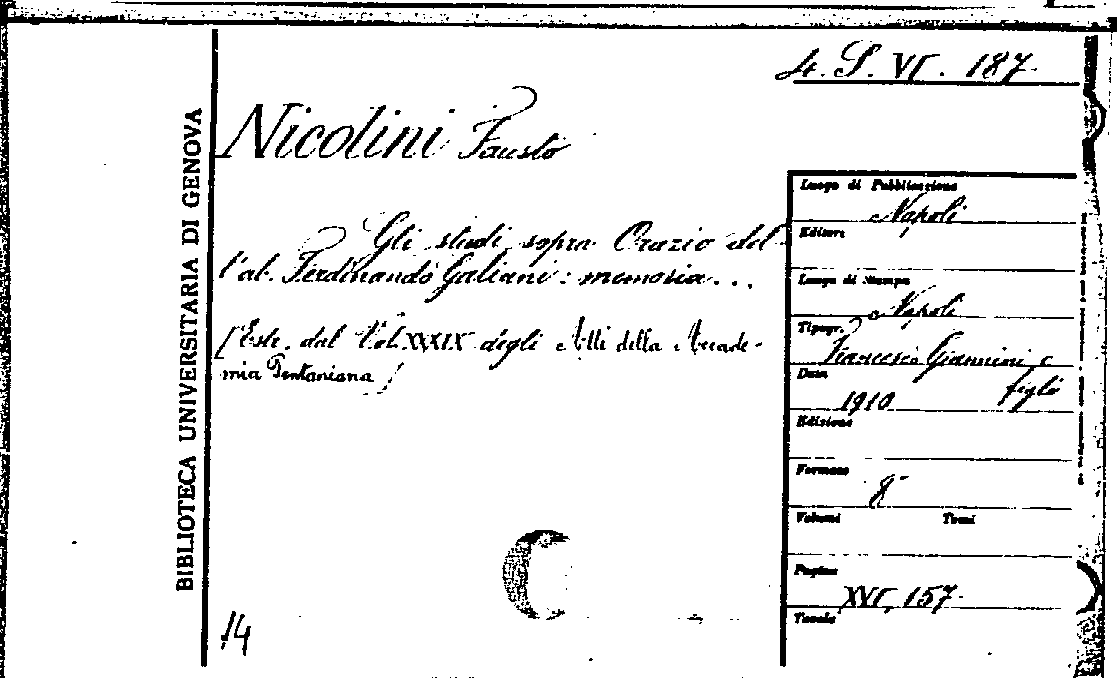 4. S. VI. 187
BIBLIOTECA UNIVERSITARIA DI GENOVA
Nicolini Fausto
Gli studi sopra Orazio del-
l'ab. Ferdinando Galiani: memoria...
[Estr. dal Vol. XXXIX degli Atti della Accade-
mia Pontaniana]
14
Luogo di Pubblicazione
Napoli
Editore
Luogo di Stampa
Napoli
Tipogr.
Francesco Giannini e
figli
Data
1910
Edizione
Formato
8°
Volumi Tomi
Pagine
XVI, 157
Tavole